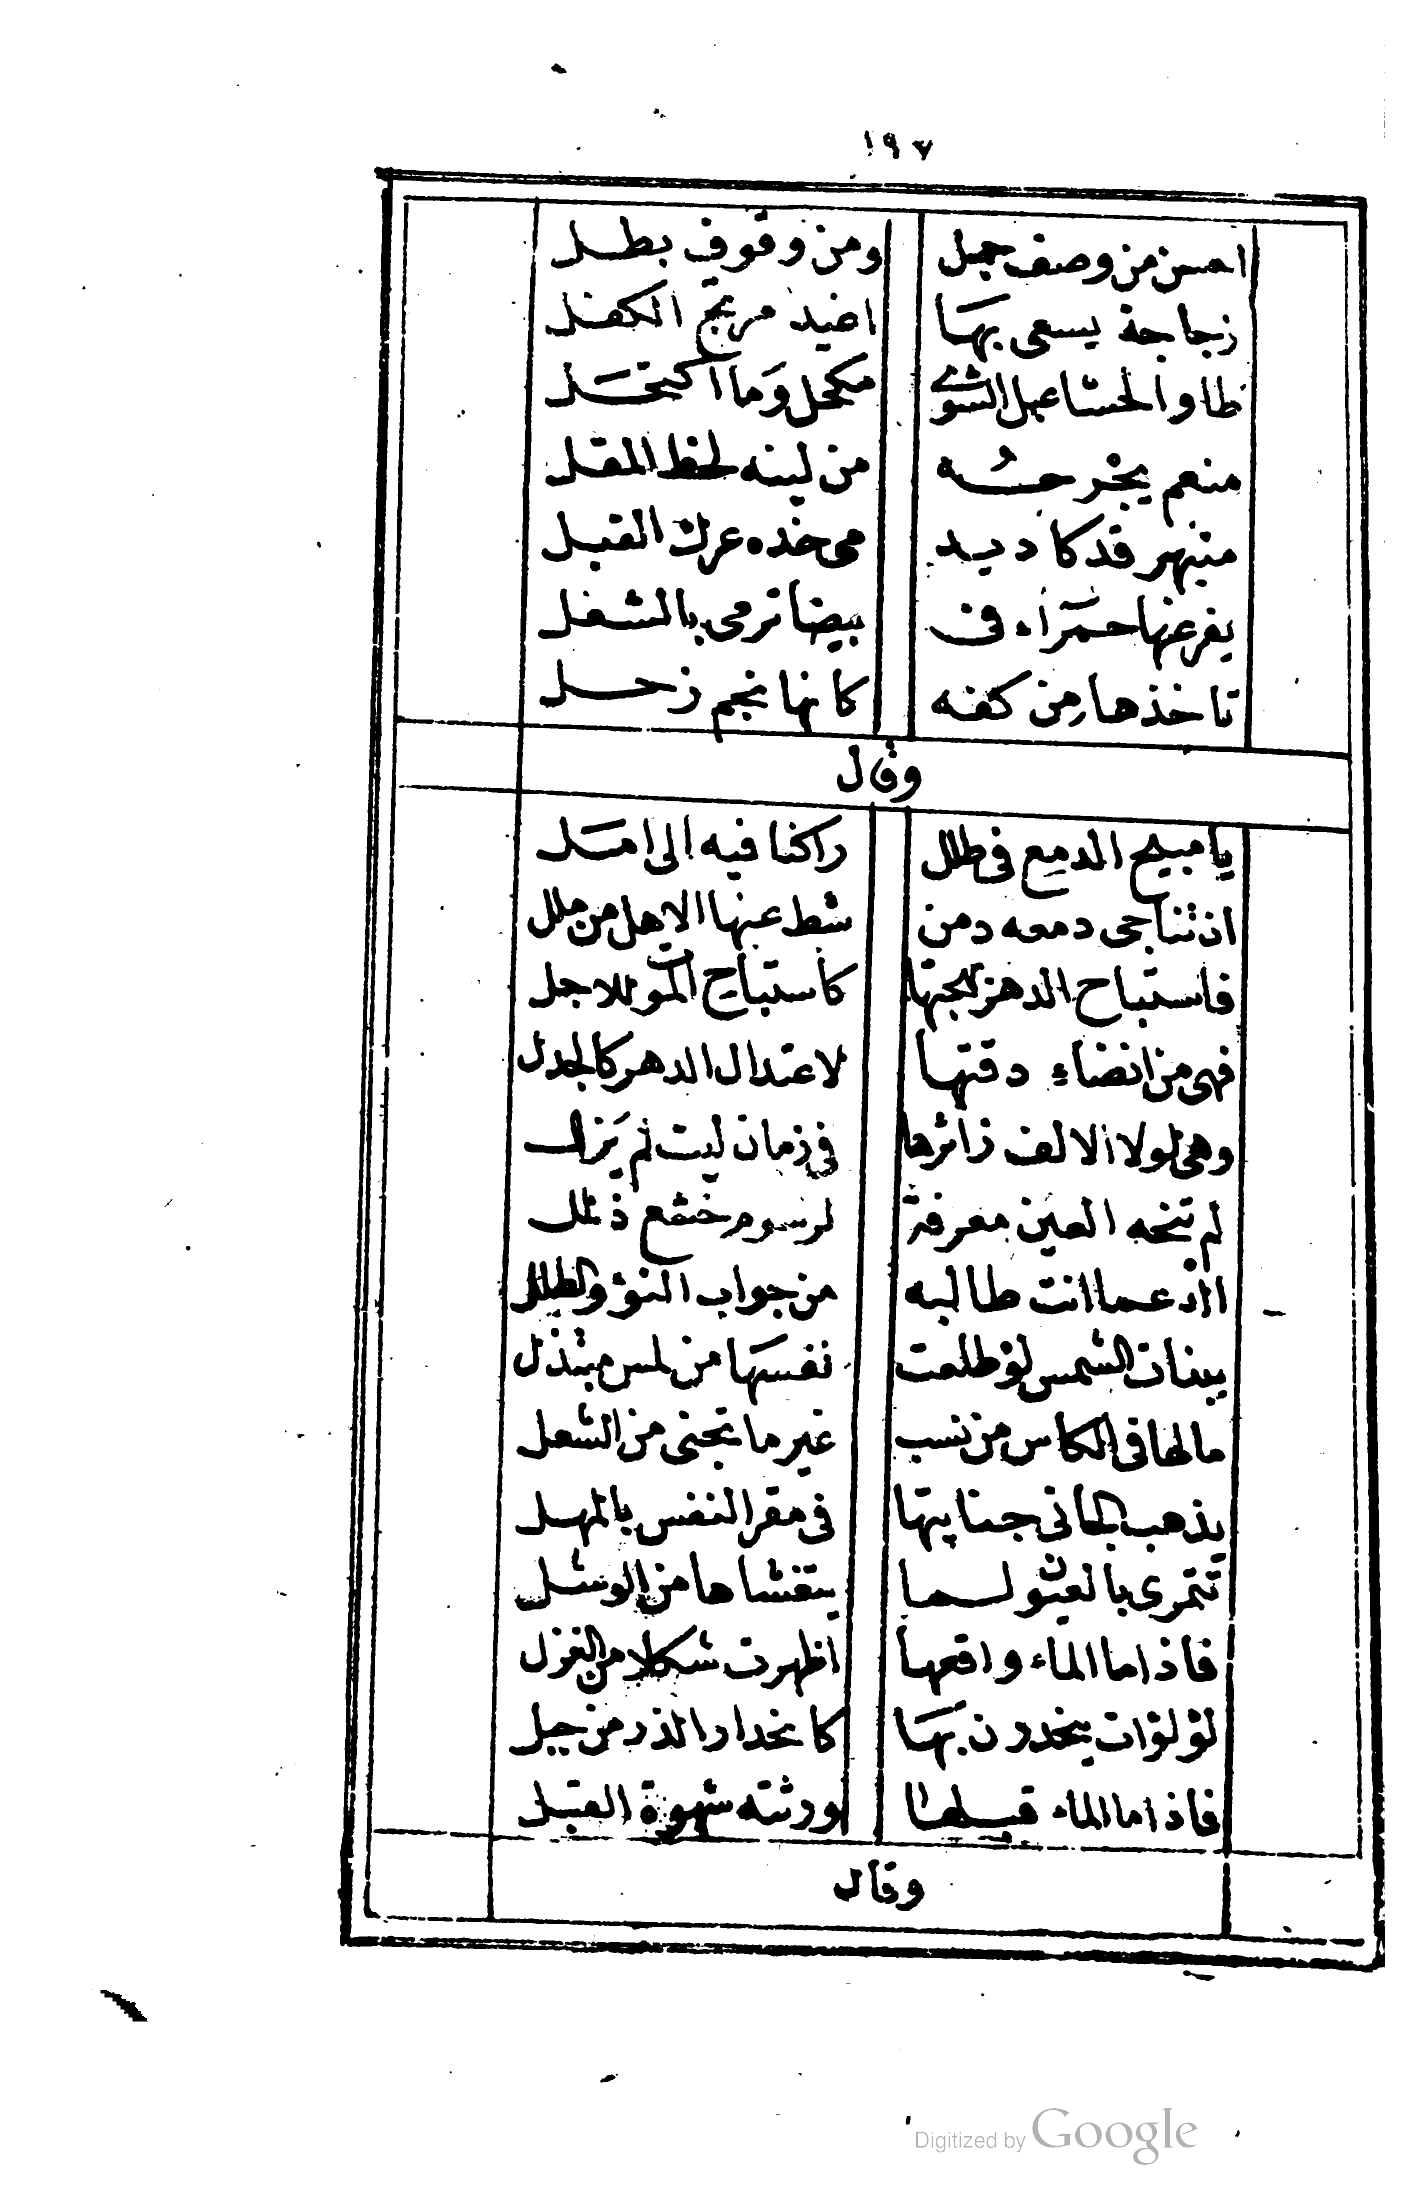 ١٩٧
احسن من وصف جمل ومن وقوف بطلل
زجاجة يسعى بها اغيد مرتج الكفل
طاو الحشا عبل الشوى مكحل وما اكتحل
منعم يجرحه من لينه لحظ المقل
منبهر قد كاد يد مى خده عرك القبل
يفرعنها حمراء فى بيضا ترمى بالشعل
تاخذها من كفه كانها نجم زحل
وقال
يا مبيح الدمع فى طلل راكنا فيه الى امل
ان تناجى دمعه دمن شط عنها الاهل من ملل
فاستباح الدهر بهجتها كاستباح الموت للاجل
فهى من انضاء دقتها لاعتدال الدهر كالجدل
وهى لولا الالف زائرها فى زمان ليت لم يزل
لم تنخه العين معرفة لرسوم خشع ذلل
اله عما انت طالبه من جواب النؤ والطلل
ببنات الشمس لو طلعت نفسها من لمس مبتذل
ما لها فى الكاس من نسب غير ما تجنى من الشعل
يذهب الجانى جنايتها فى مقر النفس بالمهل
تتمرى بالعيون لما يتغشاها من الوشل
فاذا ما الماء واقعها اظهرت شكلا من الغزل
لؤلؤات ينحدرن بها كانحدار الذر من جبل
فاذا ما الماء قبلها ورثته شهوة القبل
وقال
Digitized by Google